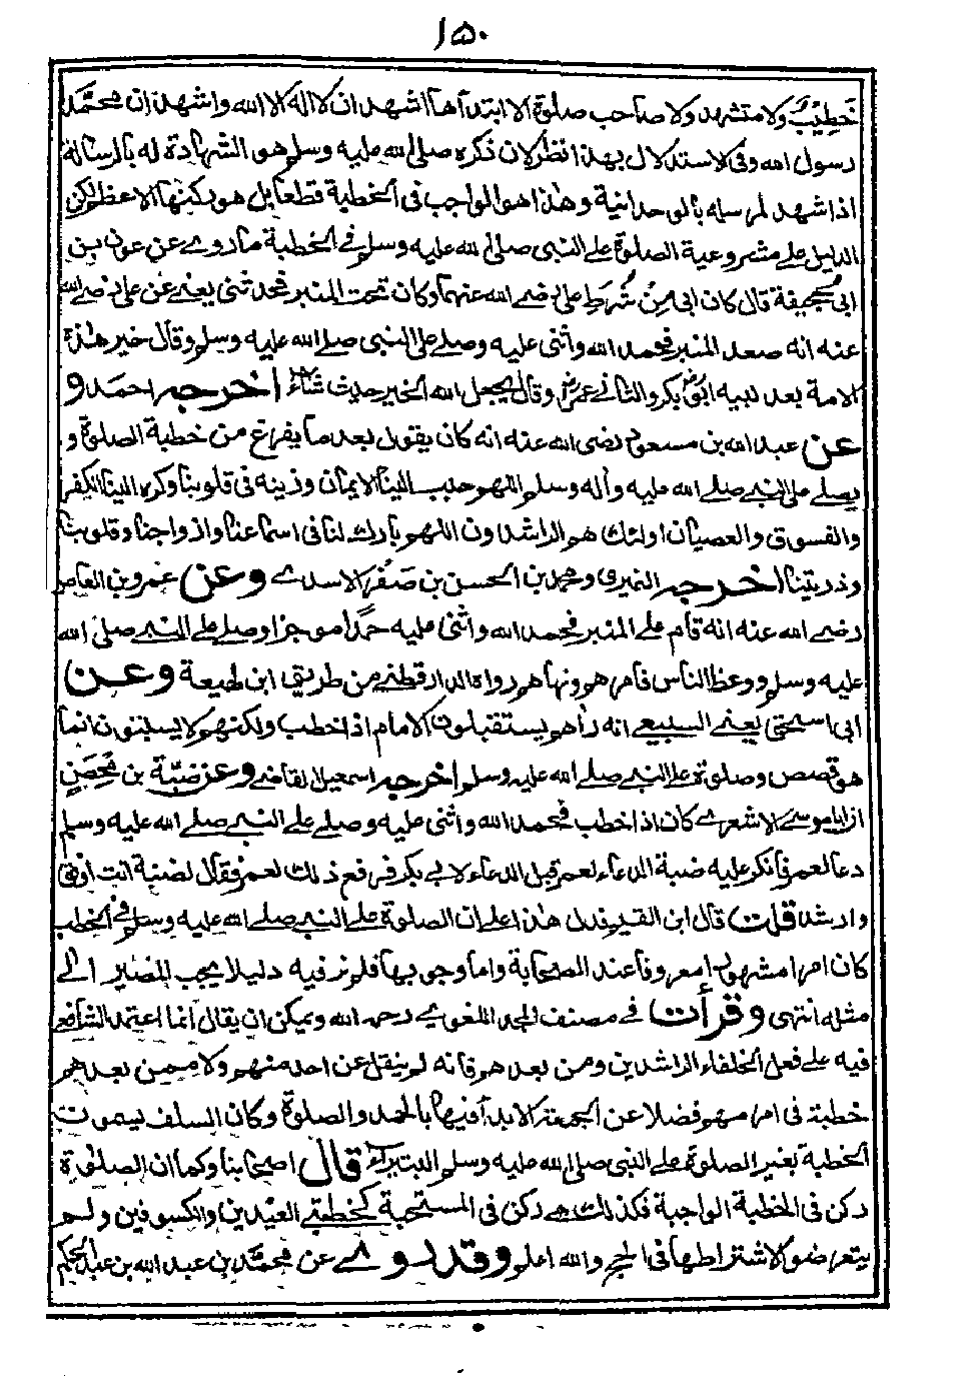 ١٥٠
خطيب ولا متشهد ولا صاحب صلوة الا ابتدأها اشهد ان لا اله الا الله واشهد ان محمد
رسول الله وفى الاستدلال بهذا نظر لان ذكره صلى الله عليه وسلم هو الشهادة له بالرسالة
اذا شهد لمرسله بالوحدانية وهذا هو الواجب فى الخطبة قطعا بل هو ركنها الاعظم لكن
الدليل على مشروعية الصلوة على النبى صلى الله عليه وسلم فى الخطبة ما روى عن عون بن
ابى جحيفة قال كان ابى من شرط على رضى الله عنهما وكان تحت المنبر فحدثنى يعنى عن على رضى الله
عنه انه صعد المنبر فحمد الله واثنى عليه وصلى على النبى صلى الله عليه وسلم وقال خير هذه
الامة بعد نبيه ابو بكر والثانى عمر وقال يجعل الله الخير حيث شاء اخرجه احمد و
عن عبد الله بن مسعود رضى الله عنه انه كان يقول بعد ما يفرغ من خطبة الصلوة و
يصلى على النبى صلى الله عليه وأله وسلم اللهم حبب الينا الايمان وزينه فى قلوبنا وكره الينا الكفر
والفسوق والعصيان اولئك هم الراشدون اللهم بارك لنا فى اسماعنا وازواجنا وقلوبنا
وذريتنا اخرجه النميرى ومحمد بن الحسن بن صقر الاسدى وعن عمرو بن العاص
رضى الله عنه انه قام على المنبر فحمد الله واثنى عليه حمدا موجزا وصلى على النبى صلى الله
عليه وسلم ووعظ الناس فامرهم ونهاهم رواه الدارقطنى من طريق ابن لهيعة وعن
ابى اسحق يعنى السبيعى انه رأهم يستقبلون الامام اذا خطب ولكنهم لا يسبتون انما
هو قصص وصلوة على النبى صلى الله عليه وسلم اخرجه اسمعيل القاضى وعن ضبة بن محصن
ان ابا موسى الاشعرى كان اذا خطب فحمد الله واثنى عليه وصلى على النبى صلى الله عليه وسلم
دعا لعمر فانكر عليه ضبة الدعاء لعمر قبل الدعاء لابى بكر فرفع ذلك لعمر فقال لضبة انت اوفق
وارشد قلت قال ابن القيم فدل هذا على ان الصلوة على النبى صلى الله عليه وسلم فى الخطب
كان امرا مشهورا معروفا عند الصحابة واما وجوبها فلم نر فيه دليلا يجب المصير الى
مثله انتهى وقرأت فى مصنف المجد اللغوى رحمه الله ويمكن ان يقال انما اعتمد الشافعى
فيه على فعل الخلفاء الراشدين ومن بعدهم فانه لم ينقل عن احد منهم ولا ممن بعدهم
خطبة فى امر مهم فضلا عن الجمعة الا بدأ فيها بالحمد والصلوة وكان السلف يسمون
الخطبة بغير الصلوة على النبى صلى الله عليه وسلم البتراء قال اصحابنا وكما ان الصلوة
ركن فى الخطبة الواجبة فكذلك هى ركن فى المستحبة كخطبتى العيدين والكسوفين ولم
يتعرضوا لاشتراطها فى الحج والله اعلم وقد روى عن محمد بن عبد الله بن عبد الحكم